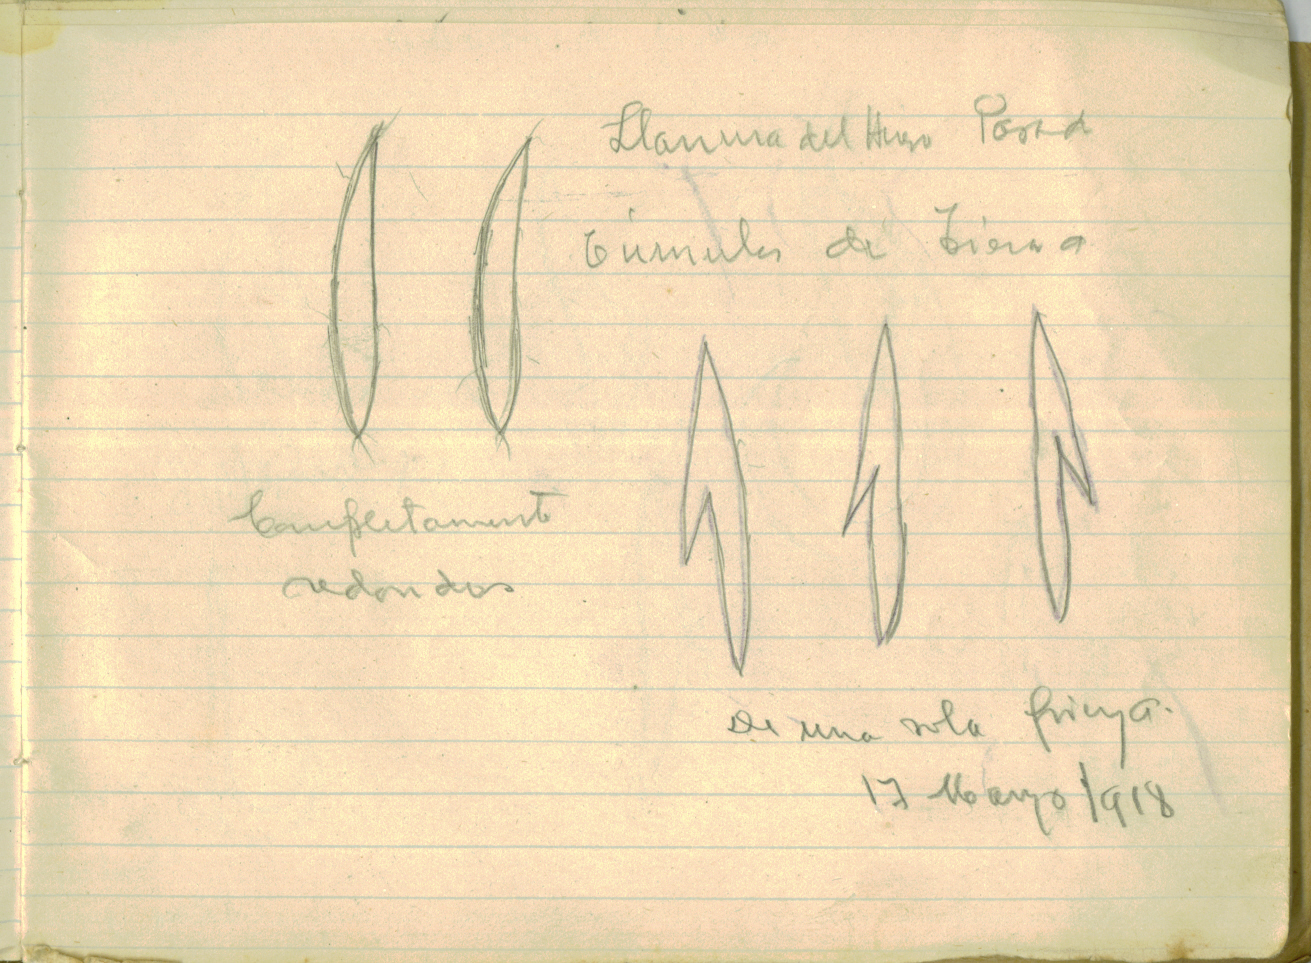 Llanura del Posada
túmulos de tierra
Completamente
redondos
De una sola
17 Marzo 1918